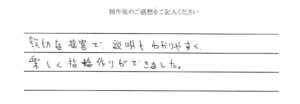 制作後のご感想をご記入ください
親切な接客で 説明もわかりやすく、
楽しく指輪作りができました。